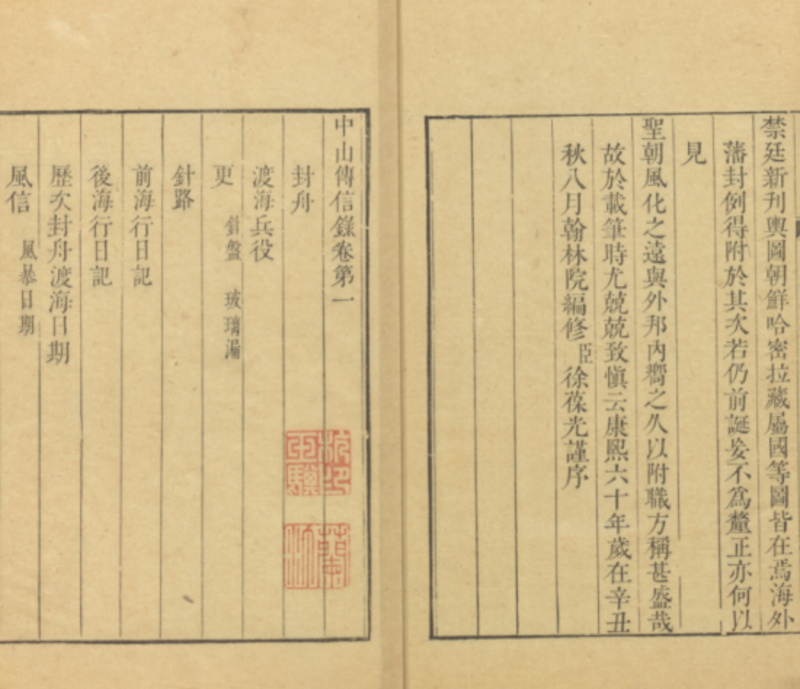 禁廷新刋輿圖朝鮮哈密拉藏屬國等圖皆在焉海外
藩封例得附於其次若仍前誕妄不爲釐正亦何以
見
聖朝風化之遠與外邦內嚮之久以附職方稱甚盛哉
故於載筆時尤兢兢致愼云康熙六十年歲在辛丑
秋八月翰林院編修臣徐葆光謹序
中山傳信錄卷第一
封舟
渡海兵役
更 針盤 玻璃漏
針路
前海行日記
後海行日記
歷次封舟渡海日期
風信 風暴日期